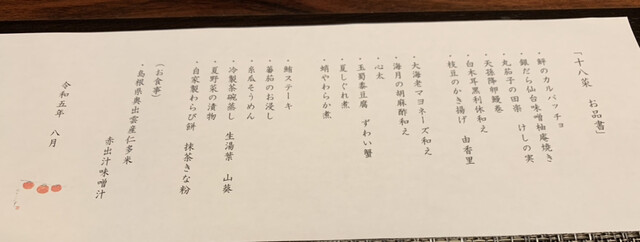 「十八菜　お品書」
・鮃のカルパッチョ
・銀だら仙台味噌柚庵焼き
・丸茄子の田楽　けしの実
・天孫降卵鰻巻
・白木耳黒利休和え
・枝豆のかき揚げ　由香里
・大海老マヨネーズ和え
・海月の胡麻酢和え
・心太
・玉蜀黍豆腐　ずわい蟹
・夏しぐれ煮
・蛸やわらか煮
・鮪ステーキ
・蕃茄のお浸し
・糸瓜そうめん
・冷製茶碗蒸し　生湯葉　山葵
・夏野菜の漬物
・自家製わらび餅　抹茶きな粉
（お食事）
・島根県奥出雲産仁多米
赤出汁味噌汁
令和五年　八月